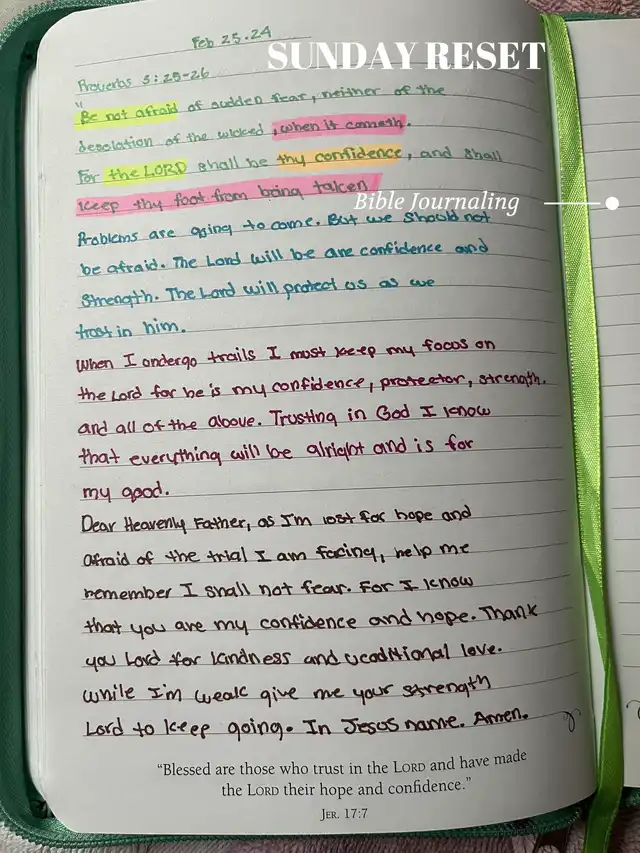 Feb 25.24
SUNDAY RESET
Proverbs 3:25-26
"Be not afraid of sudden fear, neither of the
desolation of the wicked, when it cometh.
For the LORD shall be thy confidence, and shall
keep thy foot from being taken
Bible Journaling
Problems are going to come. But we should not
be afraid. The Lord will be are confidence and
strength. The Lord will protect us as we
trust in him.
When I undergo trails I must keep my focus on
the Lord for he is my confidence, protector, strength.
and all of the above. Trusting in God I know
that everything will be alright and is for
my good.
Dear Heavenly Father, as I'm lost for hope and
afraid of the trial I am facing, help me
remember I shall not fear. For I know
that you are my confidence and hope. Thank
you Lord for kindness and ucoditional love.
while I'm weak give me your strength
Lord to keep going. In Jesus name. Amen.
"Blessed are those who trust in the LORD and have made
the LORD their hope and confidence."
JER. 17:7